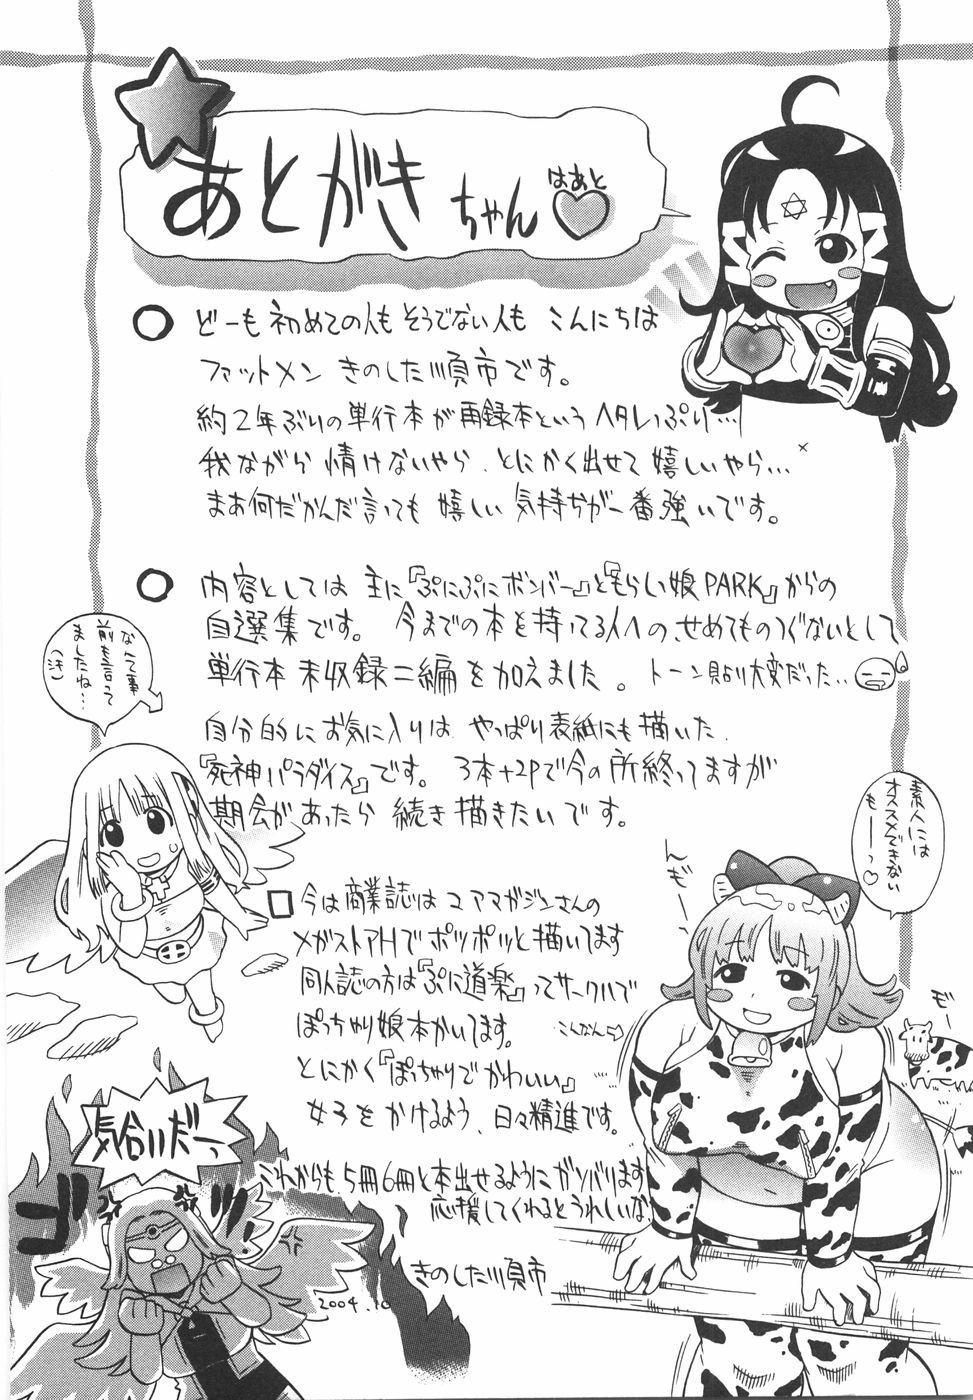 あとがきちゃん
はあと
どーも 初めての人も そうでない人も こんにちは
ファットメン きのした順市です。
約2年ぶりの単行本が再録本という ヘタレっぷり…
我ながら 情けないやら、とにかく出せて 嬉しいやら…
まあ何だかんだ言っても 嬉しい 気持ちが一番強いです。
内容としては 主に『ぷにぷにボンバー』と『もらい娘PARK』からの
自選集です。 今までの本を持ってる人への、せめてものつぐないとして
単行本 未収録二編を加えました。 トーン貼り大変だった..
自分的に お気に入りは、やっぱり表紙にも描いた、
『死神パラダイス』です。 3本+2Pで今の所終ってますが
期会があったら 続き描きたいです。
なんて事
前も言って
ましたね…
(汗)
素人には
オススメできない
もーーっ♡
今は商業誌は コアマガジンさんの
メガストアHで ポツポツと描いてます
同人誌の方は『ぷに道楽』ってサークルで
ぽっちゃり娘本かいてます。
こんなん⇨
とにかく『ぽっちゃりでかわいい』
女子をかけるよう、日々精進です。
んぎー
モー
気合いだーっ
ゴゴ
これからも 5冊6冊と本出せるようにガンバります
応援してくれるとうれしいな
きのした順市
2004.10